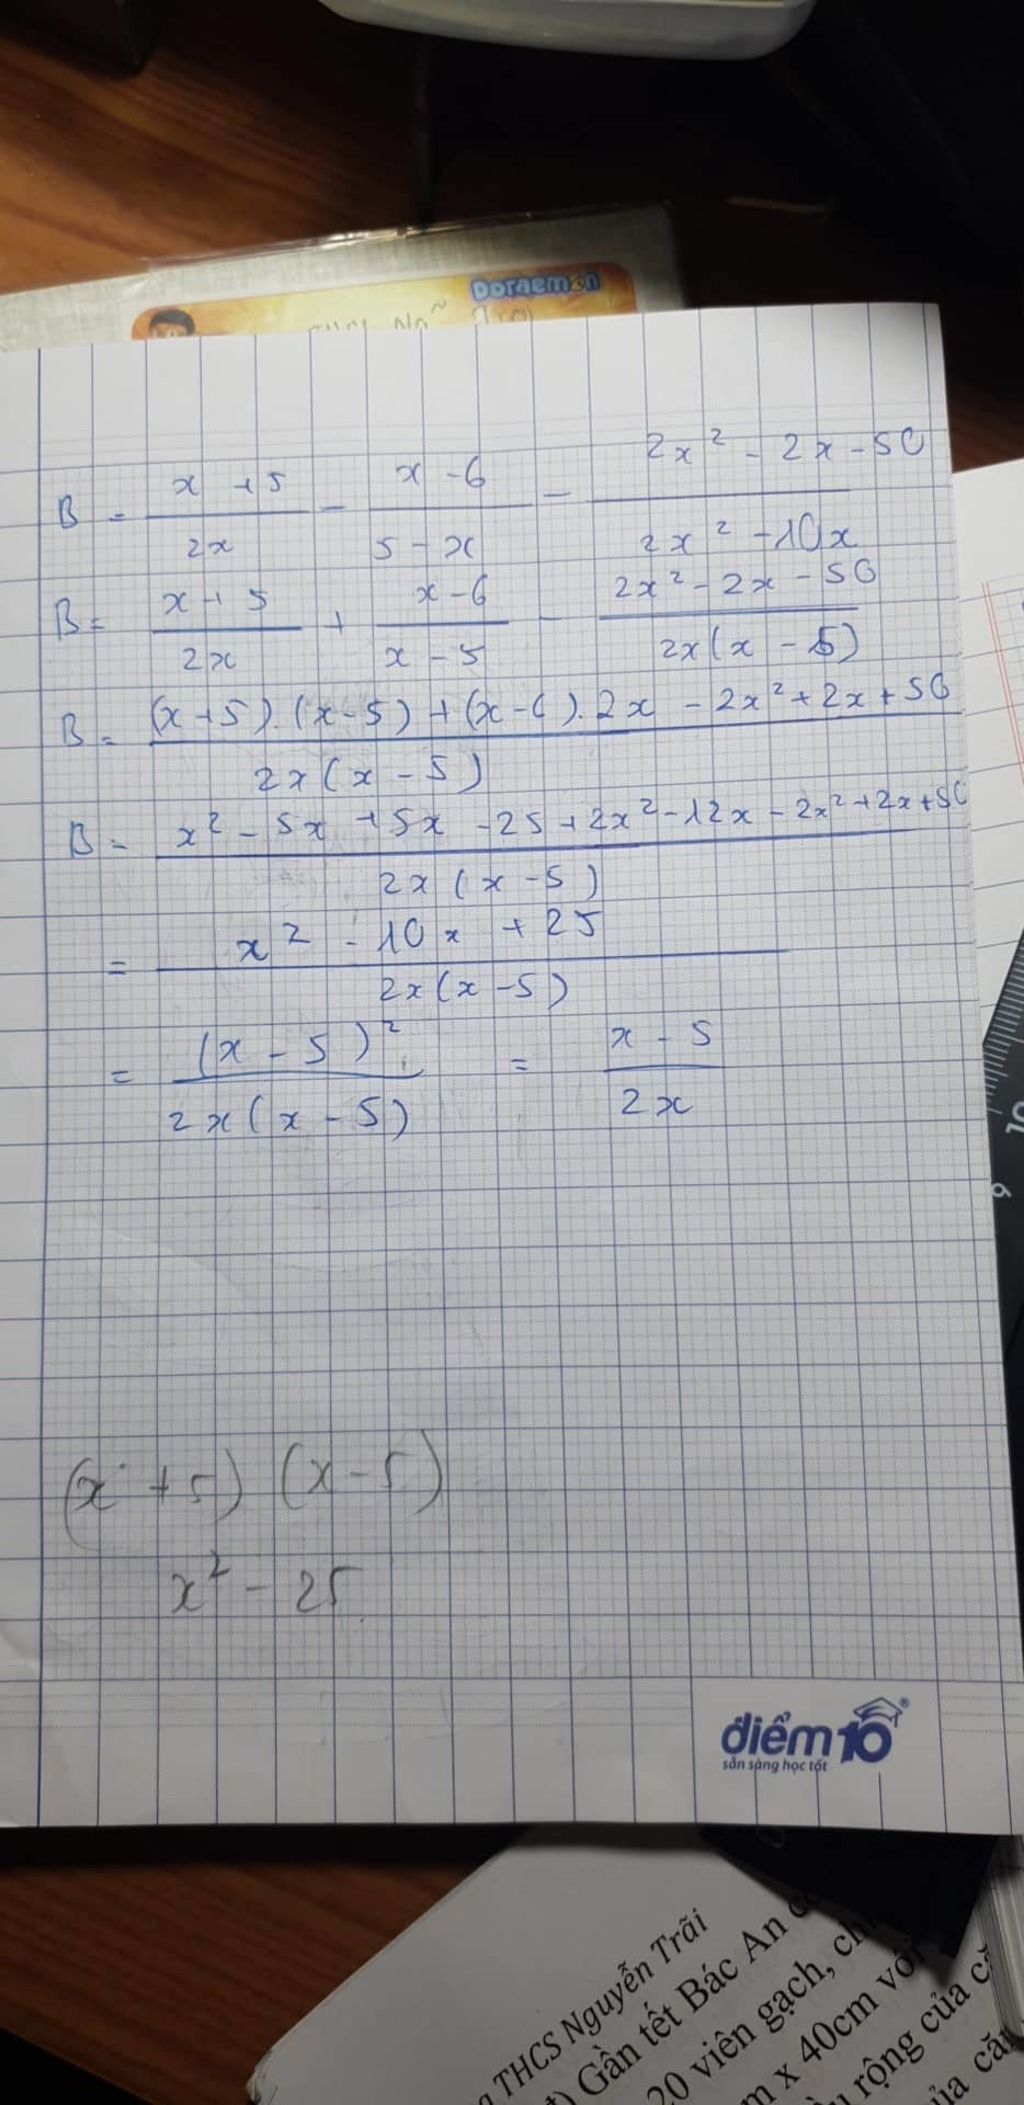 Doraemon
B = \frac{x + 5}{2x} - \frac{x - 6}{5 - x} - \frac{2x^2 - 2x - 50}{2x^2 - 10x}
B = \frac{x + 5}{2x} + \frac{x - 6}{x - 5} - \frac{2x^2 - 2x - 50}{2x(x - 5)}
B = \frac{(x + 5).(x - 5) + (x - 6).2x - 2x^2 + 2x + 50}{2x(x - 5)}
B = \frac{x^2 - 5x + 5x - 25 + 2x^2 - 12x - 2x^2 + 2x + 50}{2x(x - 5)}
= \frac{x^2 - 10x + 25}{2x(x - 5)}
= \frac{(x - 5)^2}{2x(x - 5)} = \frac{x - 5}{2x}
(x + 5) (x - 5)
x^2 - 25
điểm10®
sẵn sàng học tốt
10
9
THCS Nguyễn Trãi
Gần tết Bác An
20 viên gạch,
m x 40cm với
rộng của
của căn